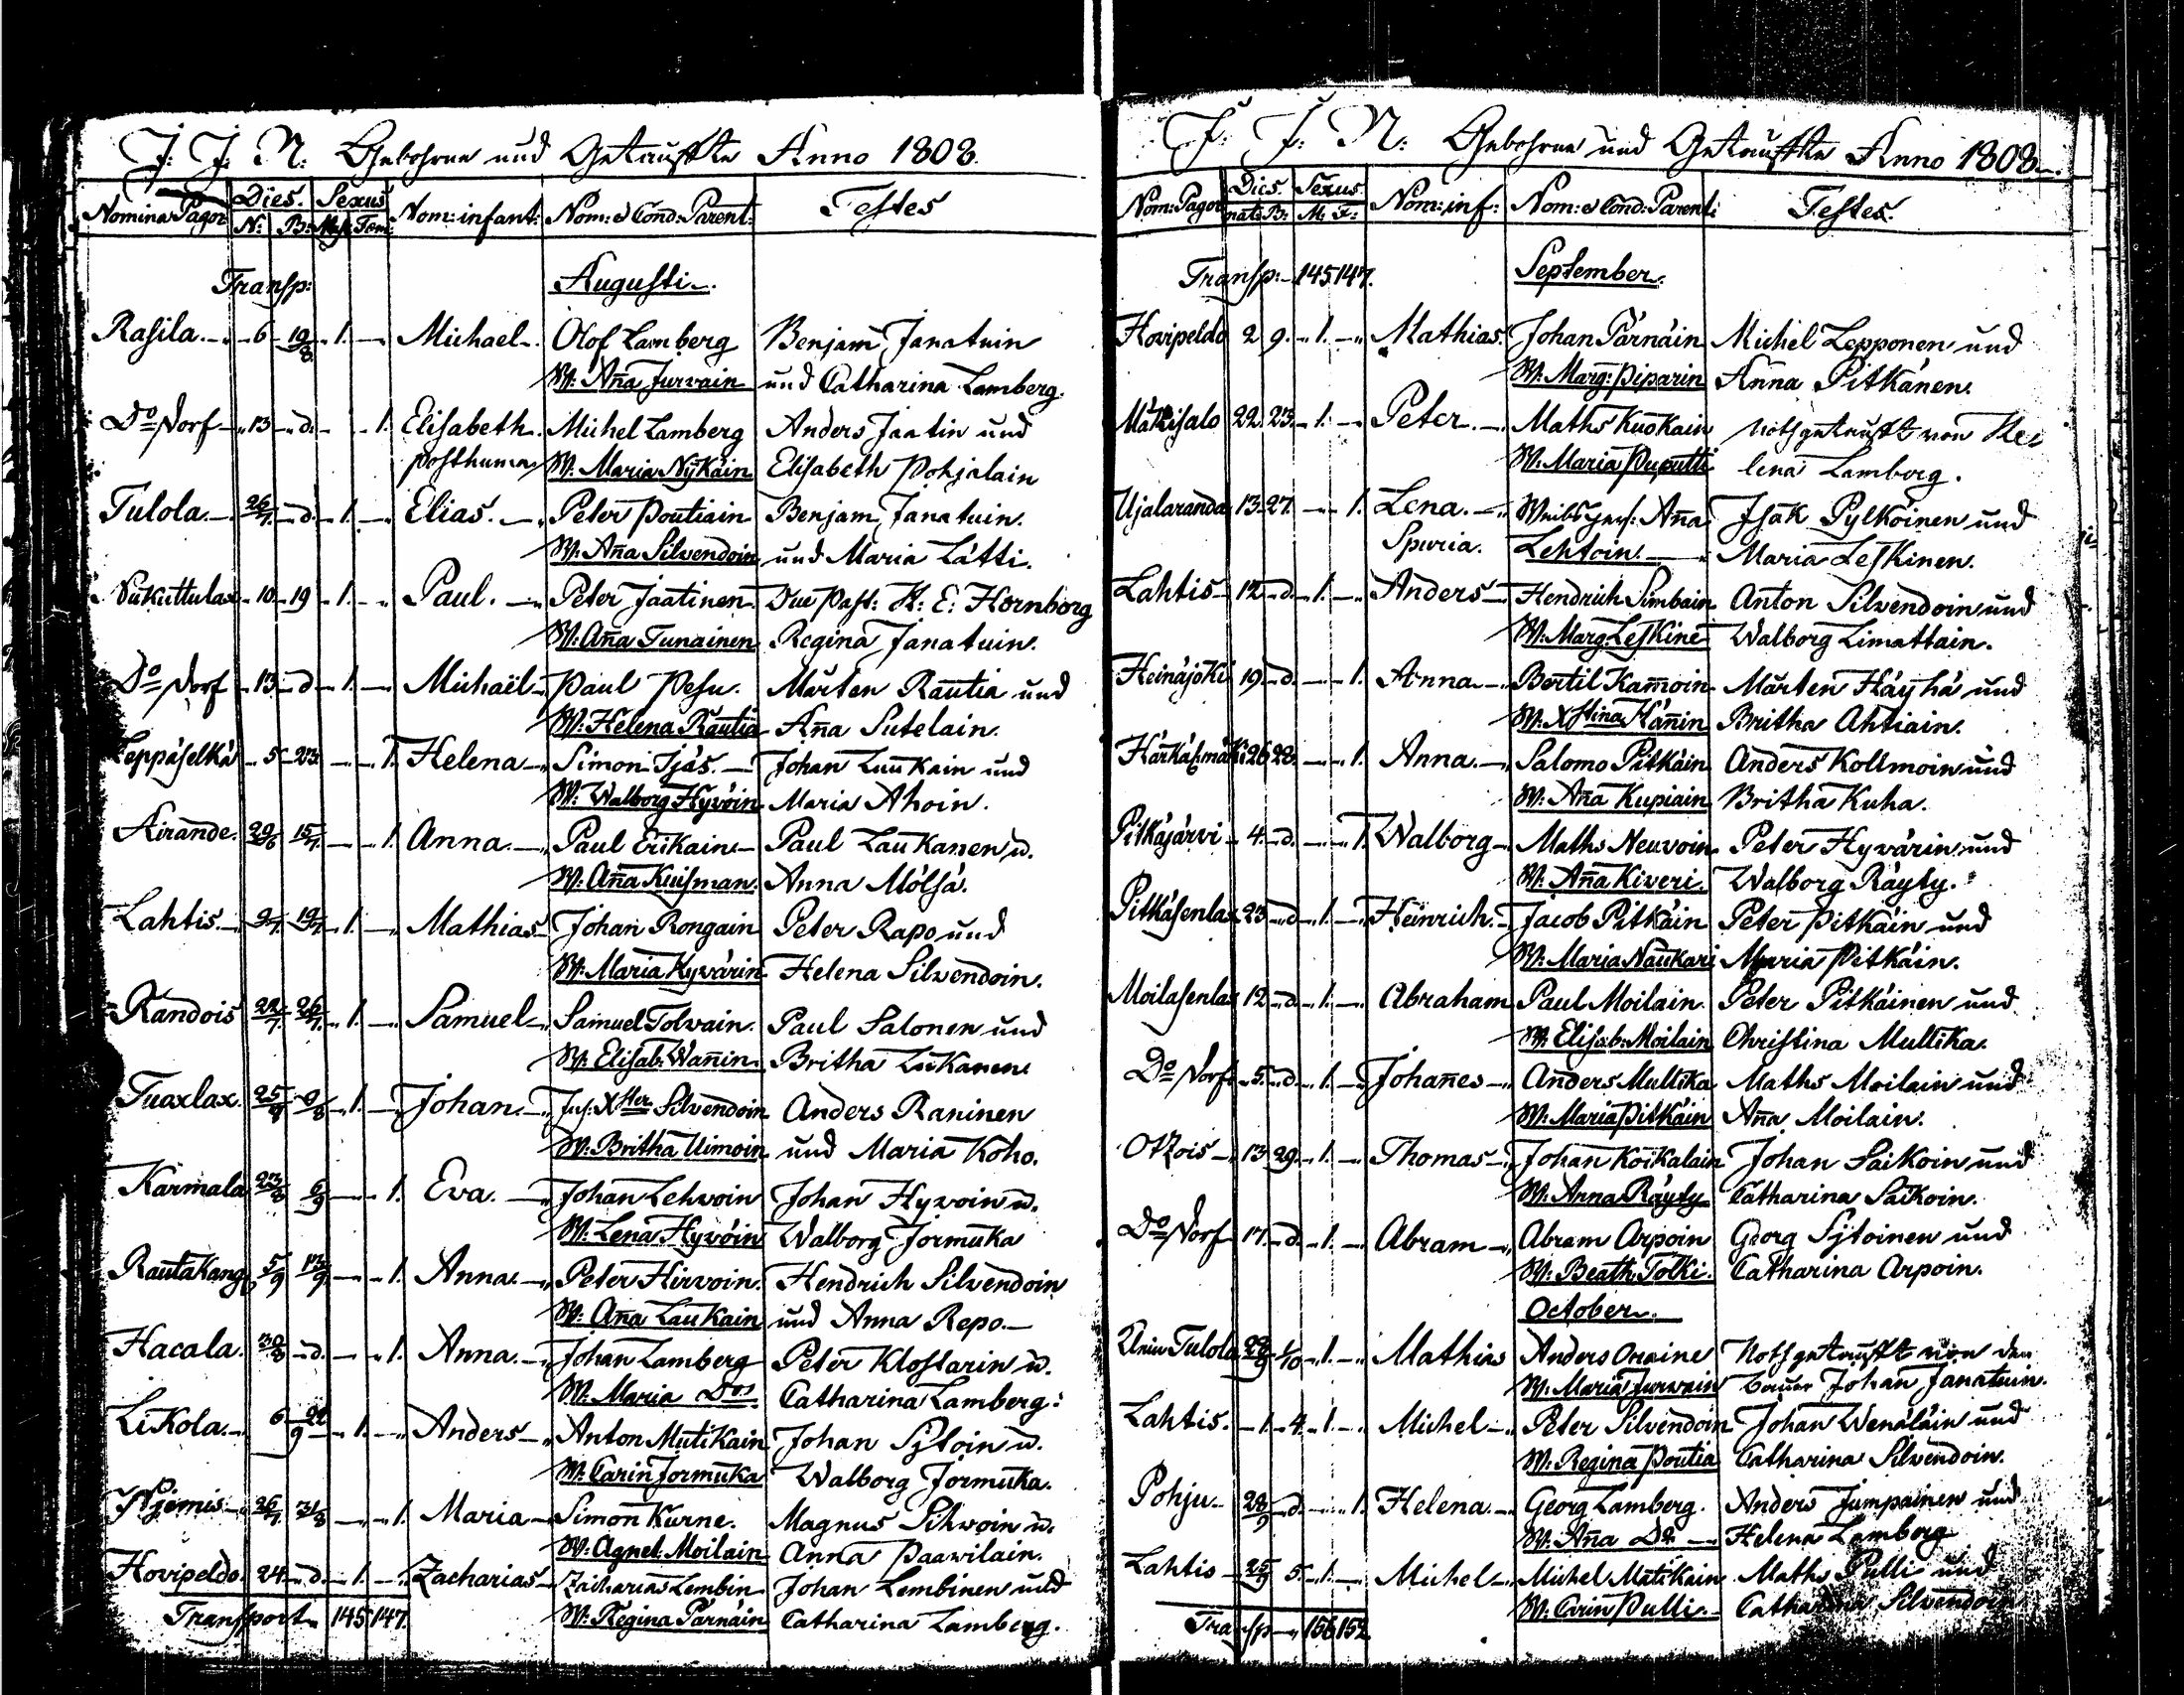 J. J. N. Gebohrne und Getauffte Anno 1808.
Nomina Pagor Dies. Sexus Nom: infant: Nom: & Cond: Parent: Testes
N: B: Fœm:
Transp: Augusti
Rasila 6 19/8 1. Michael Olof Lamberg Benjam Janatuin
W. Aña Jurvain und Catharina Lamberg.
Do Dorf 13 d. 1. Elisabeth Michel Lamberg Anders Jaatin und
posthuma W. Maria Nykäin Elisabeth Pohjalain
Tulola 26/7 d. 1. Elias. Peter Poutiain Benjam Janatuin
W. Aña Silvendoin und Maria Lätti.
10 19 1. Paul. Peter Jaatinen. Due Past: H: E: Hornborg
W. Aña Tunainen Regina Janatuin.
Do Dorf 13 d 1. Michaël Paul Pesu. Mårten Rautia und
W. Helena Rautia Aña Sutelain.
Leppäselkä 5 23 1. Helena Simon Ijäs. Johan Luukain und
W. Walborg Hyvöin Maria Ahoin.
Airande. 29/6 15/7 1. Anna Paul Erikain Paul Laukanen u.
W. Aña Kuisman. Anna Mölsä.
Lahtis. 19/7 1. Mathias Johan Rongain Peter Rapo und
W. Maria Hyvärin Helena Silvendoin.
Randois 22/7 26/7 1. Samuel Samuel Tolvain. Paul Salonen und
W. Elisab. Wañin. Britha Lukanen
Tuaxlax. 1. Johan Silvendoin Anders Raninen
W. Britha Uimoin und Maria Koho.
Karmala 23/8 6/9 1. Eva. Johan Lehvoin Johan Hyvoin u.
W. Lena Hyvöin Walborg Jormuka
Rautakang 5/9 13/9 1. Anna. Peter Hirvoin. Hendrich Silvendoin
W. Aña Laukain und Anna Repo.
Hacala. 30/8 d. 1. Anna. Johan Lamberg Peter Klossarin u.
W. Maria Dos Catharina Lamberg:
Likola. 6 22 9 1. Anders Anton Mutikain Johan Sytoin u.
W. Carin Jormuka Walborg Jormuka.
Njemis 26/7 31/8 1. Maria Simon Kurne. Magnus Sihvoin u.
W. Agnet. Moilain Anna Paavilain.
Hovipeldo. 24 d. 1. Zacharias Zacharias Lembin Johan Lembinen und
Transport 145 147 W. Regina Pärnäin Catharina Lamberg.
J. J. N. Gebohrne und Getauffte Anno 1808.
Nom: Pagor Dies. Sexus Nom: inf: Nom: & Cond: Parent: Testes.
nat: B: M: F:
Transp: 145 147. September.
Hovipeldo 2 9. 1. Mathias. Johan Pärnäin Michel Lepponen und
W. Marg: Piparin Anna Pitkänen.
Mäkisalo 22. 23. 1. Peter. Maths Kuokain Nothgetauft von He
W. Maria Puputti lena Lamberg.
Ujalaranda 13 27. 1. Lena. Aña Isak Pylkoinen und
Spuria. Lehtoin. Maria Leskinen.
Lahtis 12 d. 1. Anders Hendrich Simbain Anton Silvendoin und
W. Marg. Leskine Walborg Limattain.
Heinäjoki 19. d. 1. Anna Bertil Kamoin Mårten Häyhä und
W. Xstina Häñin Britha Ahtiain.
Härkäsmäki 26 28. 1. Anna. Salomo Pitkäin Anders Kollmoin und
W. Aña Kupiain Britha Kuha.
Pitkäjärvi 4. d. 1. Walborg Maths Neuvoin Peter Hyvärin und
W. Aña Kiveri. Walborg Räyty.
Pitkäsenlax 23 d 1. Heinrich Jacob Pitkäin Peter Pitkäin und
W. Maria Naukari Maria Pitkäin.
Moilasenlax 12 d. 1. Abraham Paul Moilain. Peter Pitkäinen und
W. Elisab: Moilain Christina Mullika.
Do Dorf 5. d. 1. Johañes Anders Mullika Maths Moilain und
W. Maria Pitkäin Aña Moilain.
Otzois 13 29. 1. Thomas Johan Koikalain Johan Saikoin und
W. Anna Räyty Catharina Saikoin.
Do Dorf 17. d. 1. Abram Abram Arpoin Georg Sytoinen und
W. Beath. Tolki. Catharina Arpoin.
October.
Tulola 29/9 1/10 1. Mathias Anders Nothgetauft von den
W. Maria Jurvain Bauer Johan Janatuin.
Lahtis. 1. 4. 1. Michel Peter Silvendoin Johan Wenäläin und
W. Regina Poutia Catharina Silvendoin.
Pohju 28/9 d. 1. Helena Georg Lamberg. Anders Jumpainen und
W. Aña Do Helena Lamberg
Lahtis 25/9 5. 1. Michel Michel Matikain Maths Pulli und
Transp 156 152 W. Carin Pulli Catharina Silvendoin